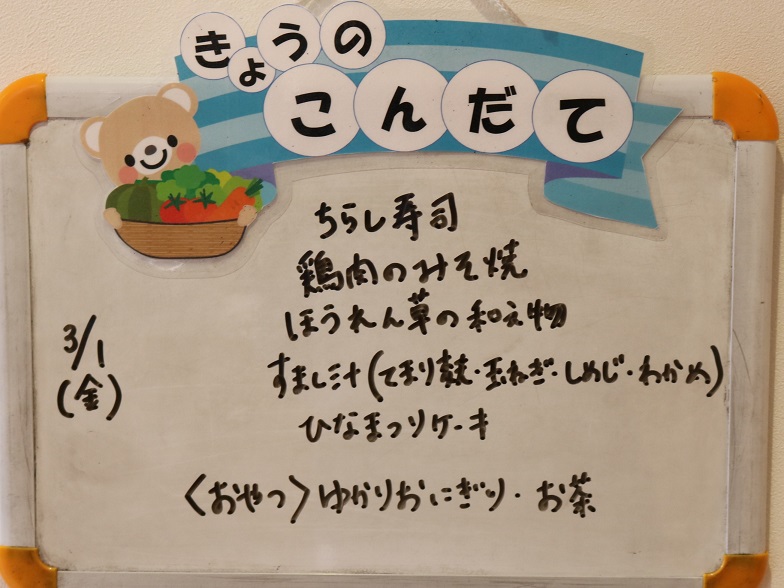 きょうの
こんだて
ちらし寿司
鶏肉のみそ焼
ほうれん草の和え物
3/1
(金)
すまし汁(てまり麩・玉ねぎ・しめじ・わかめ)
ひなまつりケーキ
〈おやつ〉ゆかりおにぎり・お茶